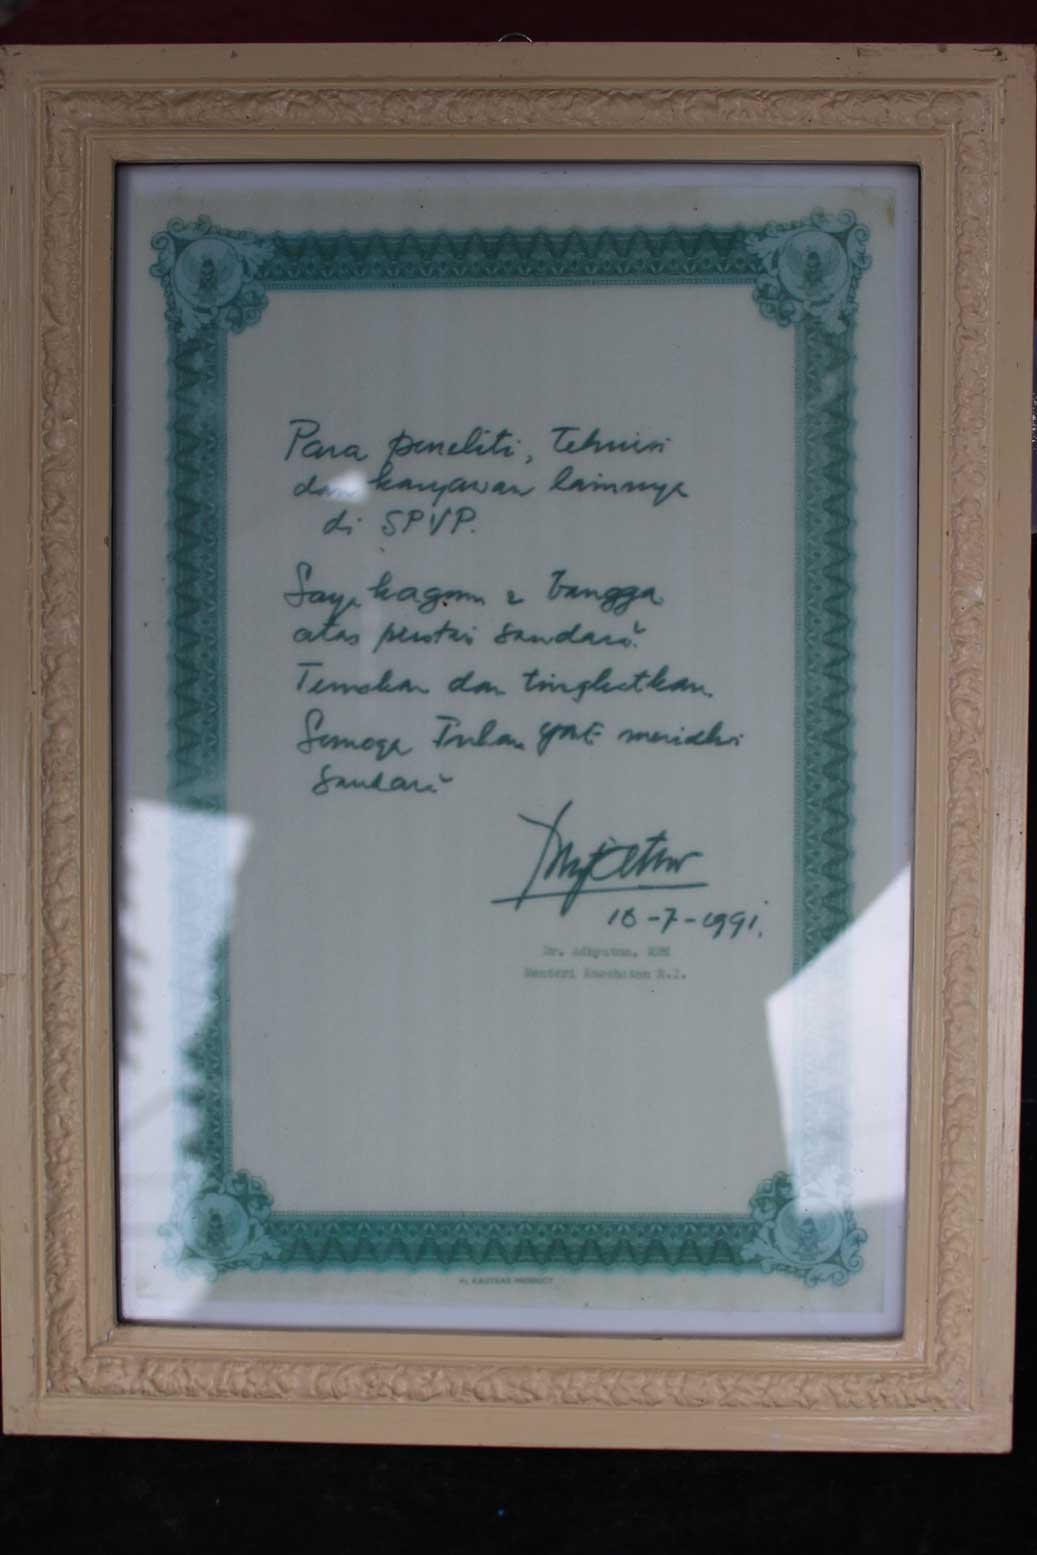 Para peneliti, Tehnisi
dan karyawan lainnya
di SPVP.
Saya kagum & bangga
atas prestasi saudara².
Temukan dan tingkatkan.
Semoga Tuhan YME meridhoi
saudara²
18-7-1991.
Dr. Adhyatma, MPH
Menteri Kesehatan R.I.
PRODUCT